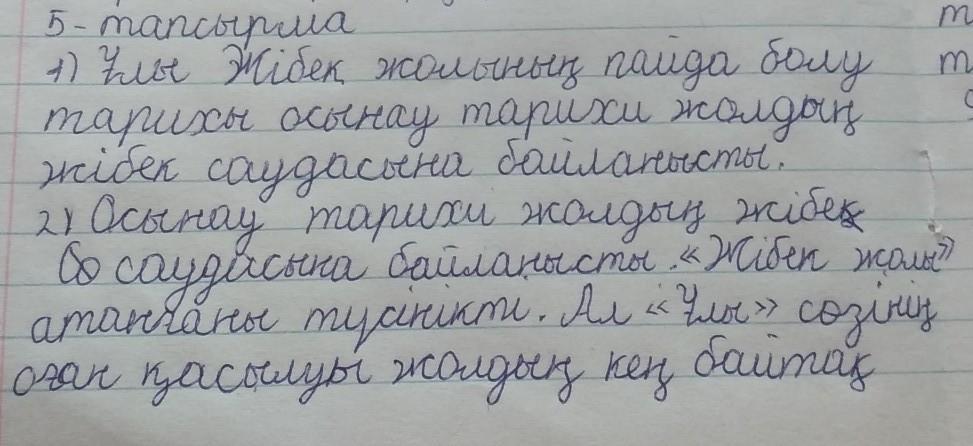 5-тапсырма
1) Ұлы Жібек жолының пайда болу
тарихы осынау тарихи жолдың
жібек саудасына байланысты.
2) Осынау тарихи жолдың жібек
саудасына байланысты. «Жібек жолы»
атанғаны түсінікті. Ал «Ұлы» сөзінің
оған қасылуы жолдың кең байтақ